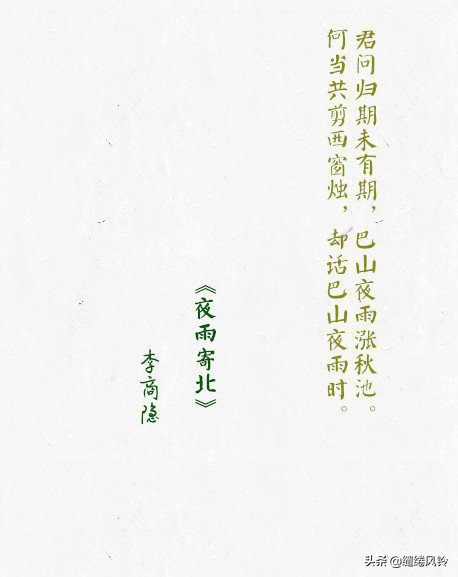 君问归期未有期，巴山夜雨涨秋池。
何当共剪西窗烛，却话巴山夜雨时。
《夜雨寄北》
李商隐
头条 @缱绻风铃